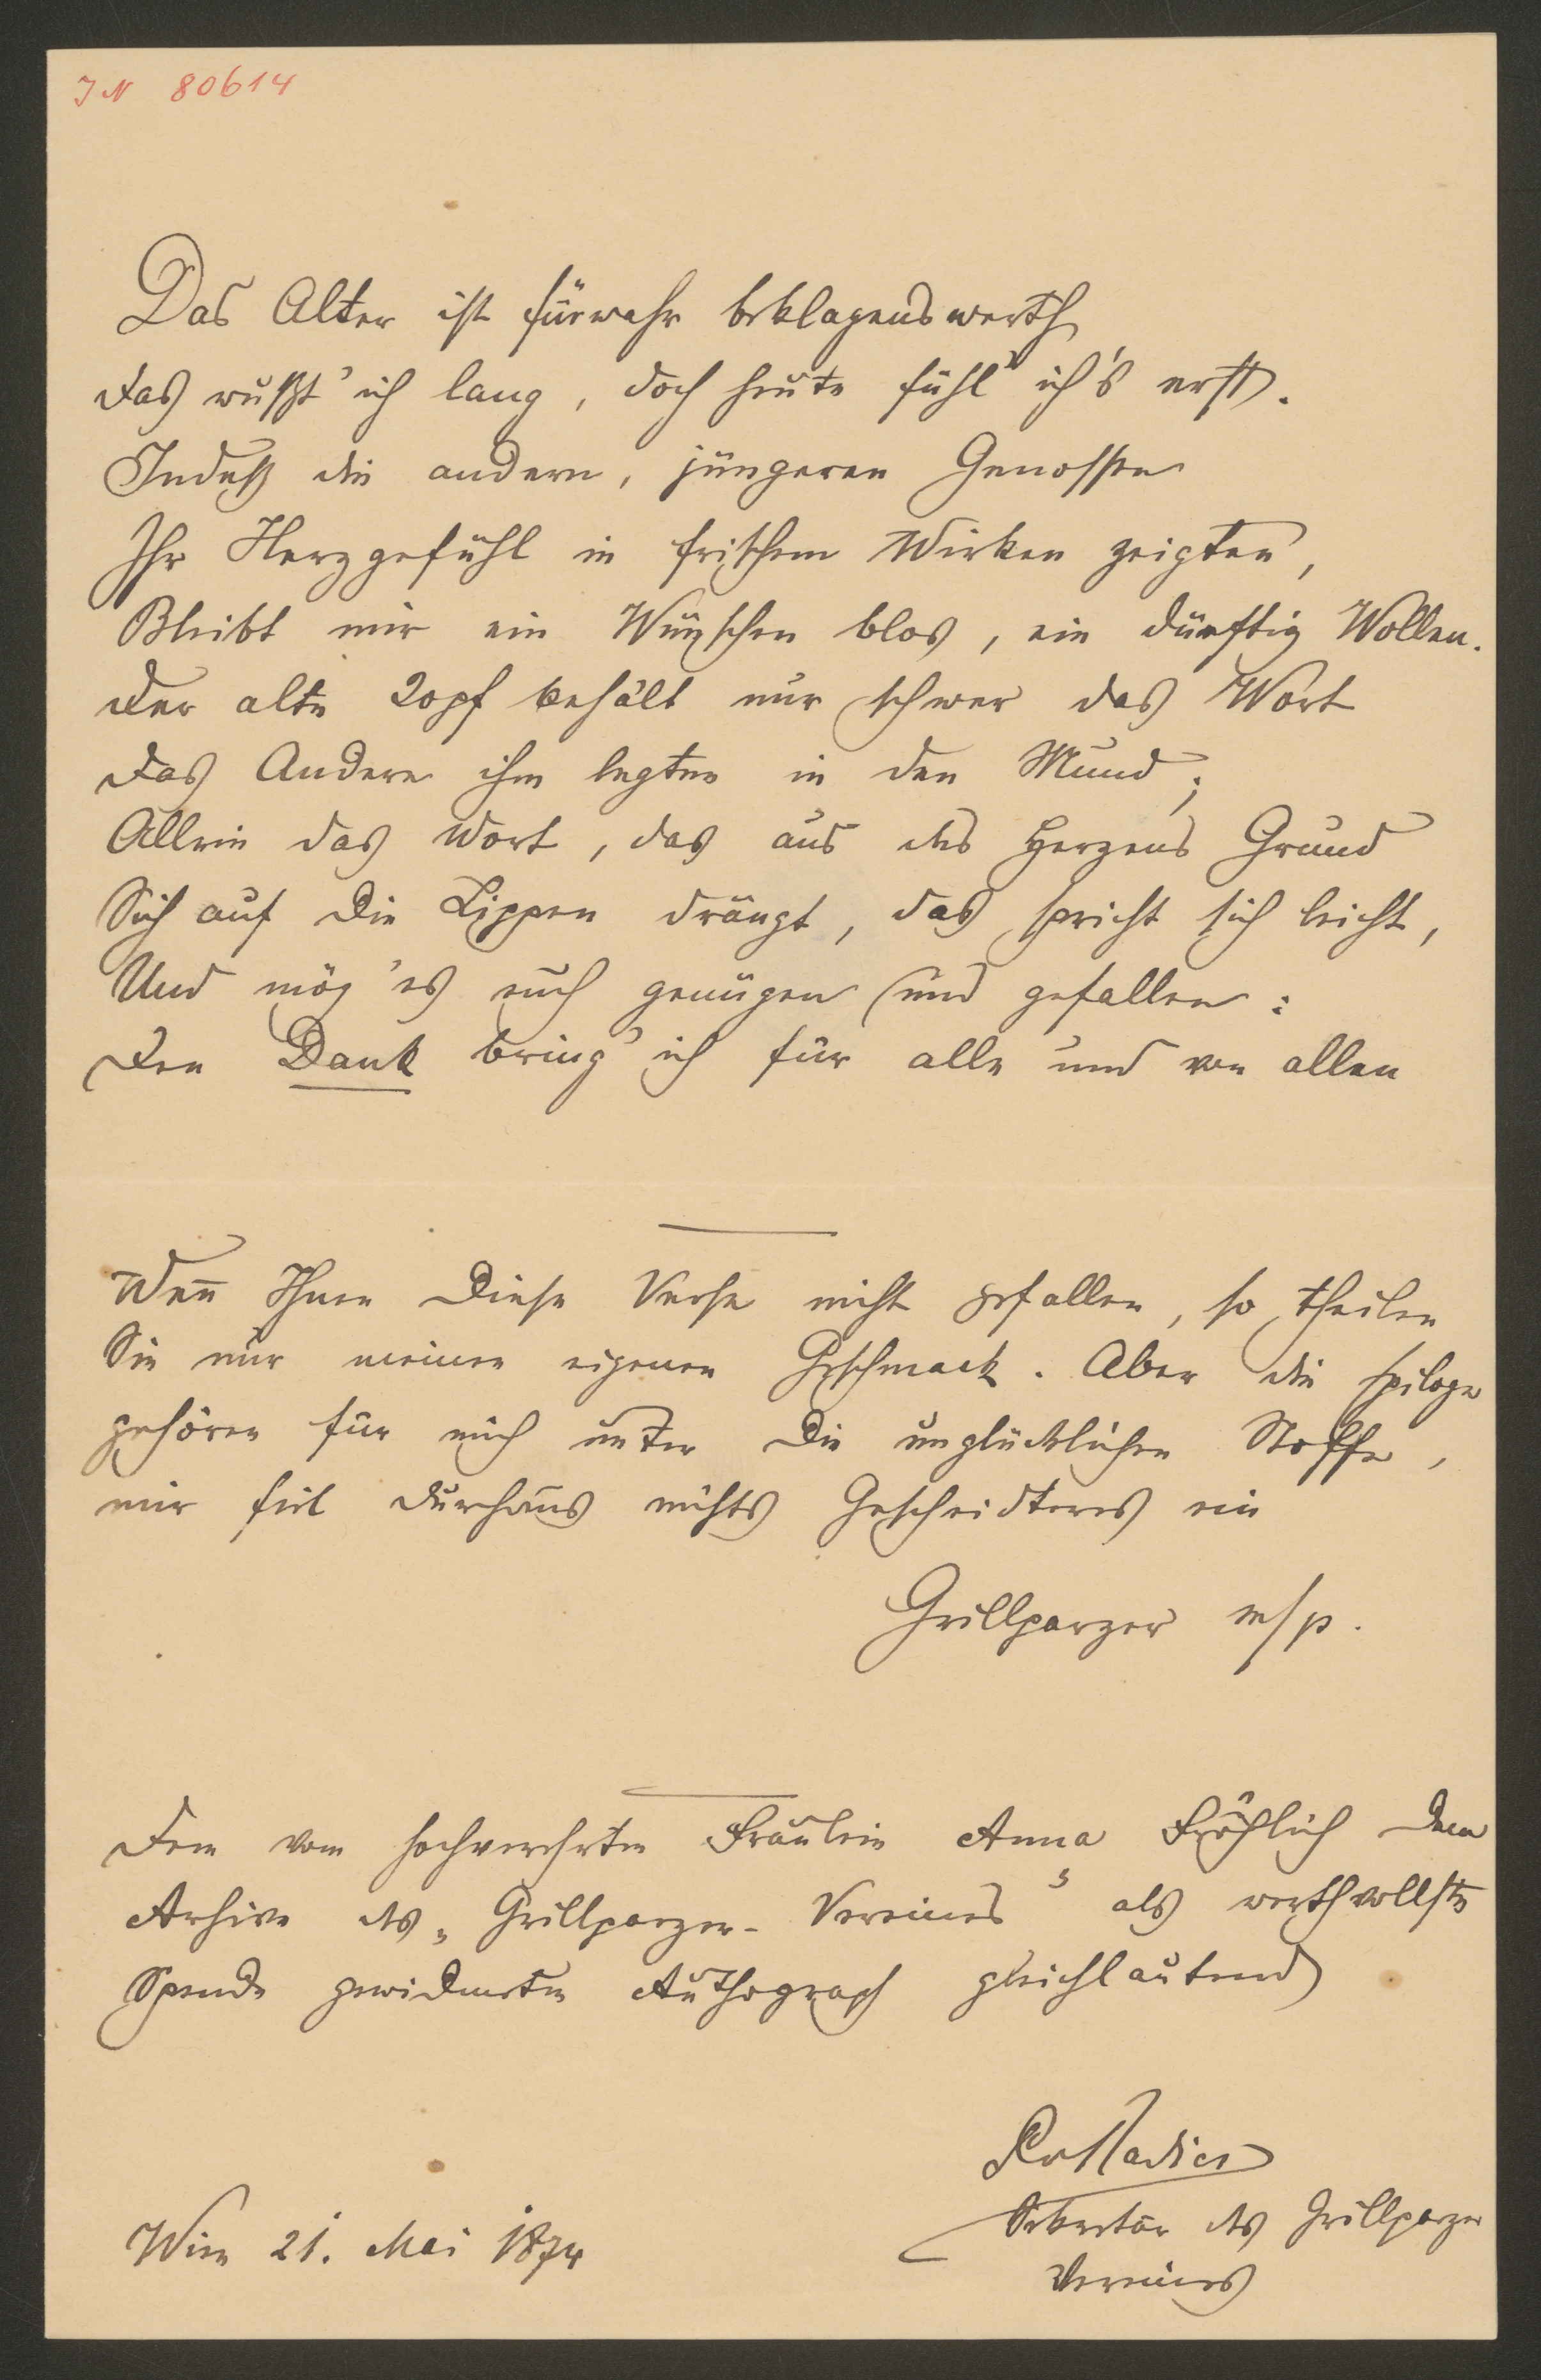 IN 80614
Das Alter ist fürwahr beklagenswerth
Das wußt' ich lang, doch heute fühl' ich's erst.
Indeß die andern, jüngeren Genossen
Ihr Herzgefühl in frischem Wirken zeigten,
Bleibt mir ein Wünschen blos, ein dürftig Wollen.
Der alte Kopf behält nur schwer das Wort
Das Andere ihm legten in den Mund;
Allein das Wort, das aus des Herzens Grund
Sich auf die Lippen drängt, das spricht sich leicht,
Und mög' es euch genügen und gefallen:
Den Dank bring' ich für alle und von allen
Wen̄ Ihnen diese Verse nicht gefallen, so theilen
Sie nur meinen eigenen Geschmack. Aber die Epiloge
gehören für mich unter die unglücklichen Stoffe,
mir fiel durchaus nichts Gescheidteres ein
Grillparzer m/p.
Dem vom hochverehrten Fräulein Anna Fröhlich dem
Archive des „Grillparzer-Vereines" als werthvollste
Spende gewidmeten Authograph gleichlautend
PvRadics
Sekretär des Grillparzer
Wien 21. Mai 1874
Vereines